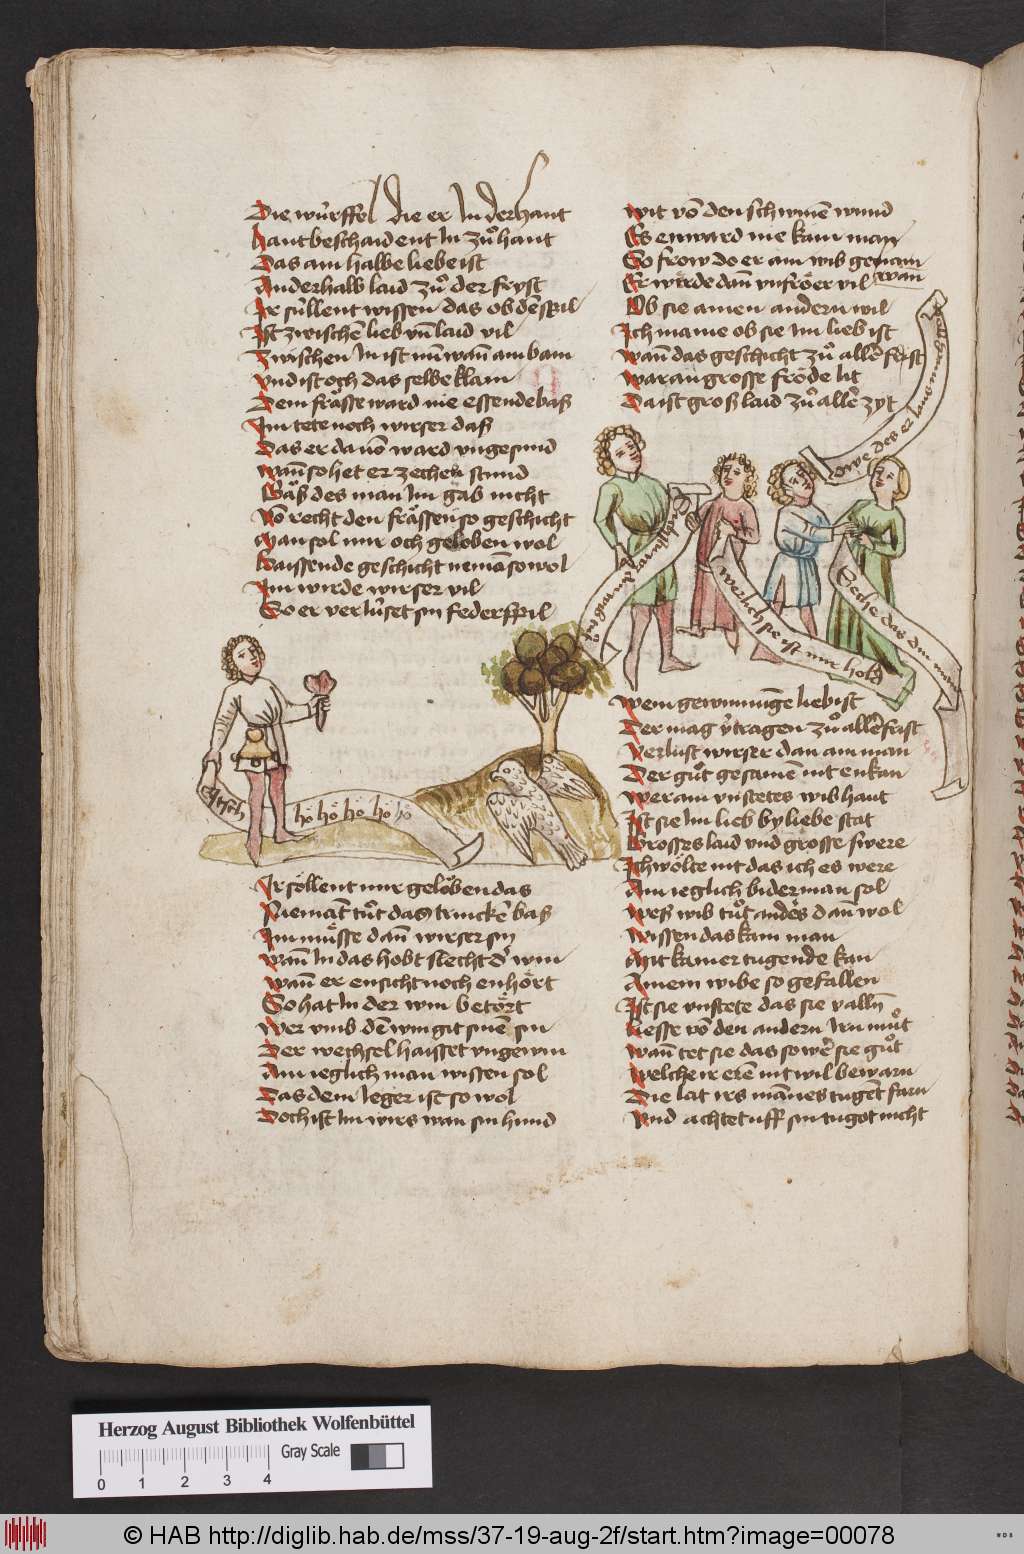 Die wu̍rffel die er In der hant
hant beschaident In zů hant
Das ain halbe liebe ist
Anderhalb laid zů der fryst
Ir su̍llent wissen das ob dē spil
Ist zwischē lieb vn̄ laid vil
Zwischen In ist nū wan̄ ain bain
vnd ist och das selbe klain
Dem frässe ward nie essende baß
Im tete noch wirser daß
Das er dauō ward vngesund
wan̄ so het er zechen stund
des man Im gab nicht
Vō recht den frässen so geschicht
Man sol mir och geloben wol
baissende geschicht niemā so wol
Im wirde wirser vil
So er verlu̍set sin federspil
hö hö hö hö hö
Ir söllent mir gelöben das
Niemāt tůt das trinckē baß
Im müsse dan̄ wirser sin
wan̄ In das hobt slecht d' win
wan̄ er ensicht noch enhört
So hat In der win betört
wer vmb dē win git sinē sin
Der wechsel haisset vngewin
Ain ieglich man wissen sol
Das dem Jeger ist so wol
Doch ist Im wirs wan sin hund
wit vō den schwinē wund
Es enward nie kain man
So frow do er ain wib genam
wan
Er werde dan̄ vnfröer vil
Ob sie ainen andern wil
Ich maine ob sie Im lieb ist
wan̄ das geschicht zů allē frist
war an grosse fröde lit
Da ist groß laid zů allē zyt
owe des er
werlich sie ist mir hold
Seche das din man
wem gewinnūge lieb ist
Der mag v̍tragen zů allē frist
Verlust wirser dan ain man
Der gůt gesamē nit enkan
wer ain vnstetes wib haut
Ist sie Im lieb by liebe stat
Grosses laid vnd grosse swere
Ich wölte nit das ich es were
Ain ieglich biderman sol
weß wib tůt anders dan̄ wol
wissen das kain man
Mit kainer tugende kan
Ainem wibe so gefallen
Ist sie vnstete das sie vallē
liesse vō den andern Irn můt
wan̄ tet sie das so wē sie gůt
welche ir erē nit wil bewarn
Die lat irs mānes tugēt farn
Vnd achtet uff sin tugot nicht
Herzog August Bibliothek Wolfenbüttel
Gray Scale
0 1 2 3 4
© HAB http://diglib.hab.de/mss/37-19-aug-2f/start.htm?image=00078
WDB